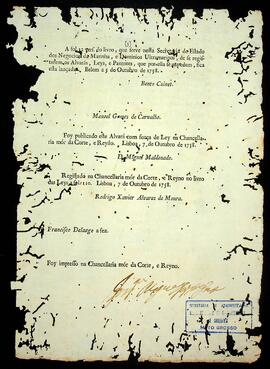 A fol. do livro, que serve nesta Secretaria de Estado
dos Negocios da Marinha, e Dominios Ultramarinos, de se regis-
tarem os Alvarás, Leys, e Patentes, que por ella se expedem, fica
esta lançada. Belem a 5 de Outubro de 1758.
Manoel Gomes de Carvalho.
Foy publicado este Alvará com força de Ley na Chancella-
ria mór da Corte, e Reyno. Lisboa, 7 de Outubro de 1758.
D. Miguel Maldonado.
Registado na Chancellaria mór da Corte, e Reyno no livro
das Leys a fol. Lisboa, 7 de Outubro de 1758.
Rodrigo Xavier Alvares de Moura.
Francisco Delaage a fez.
Foy impresso na Chancellaria mór da Corte, e Reyno.
MATO GROSSO